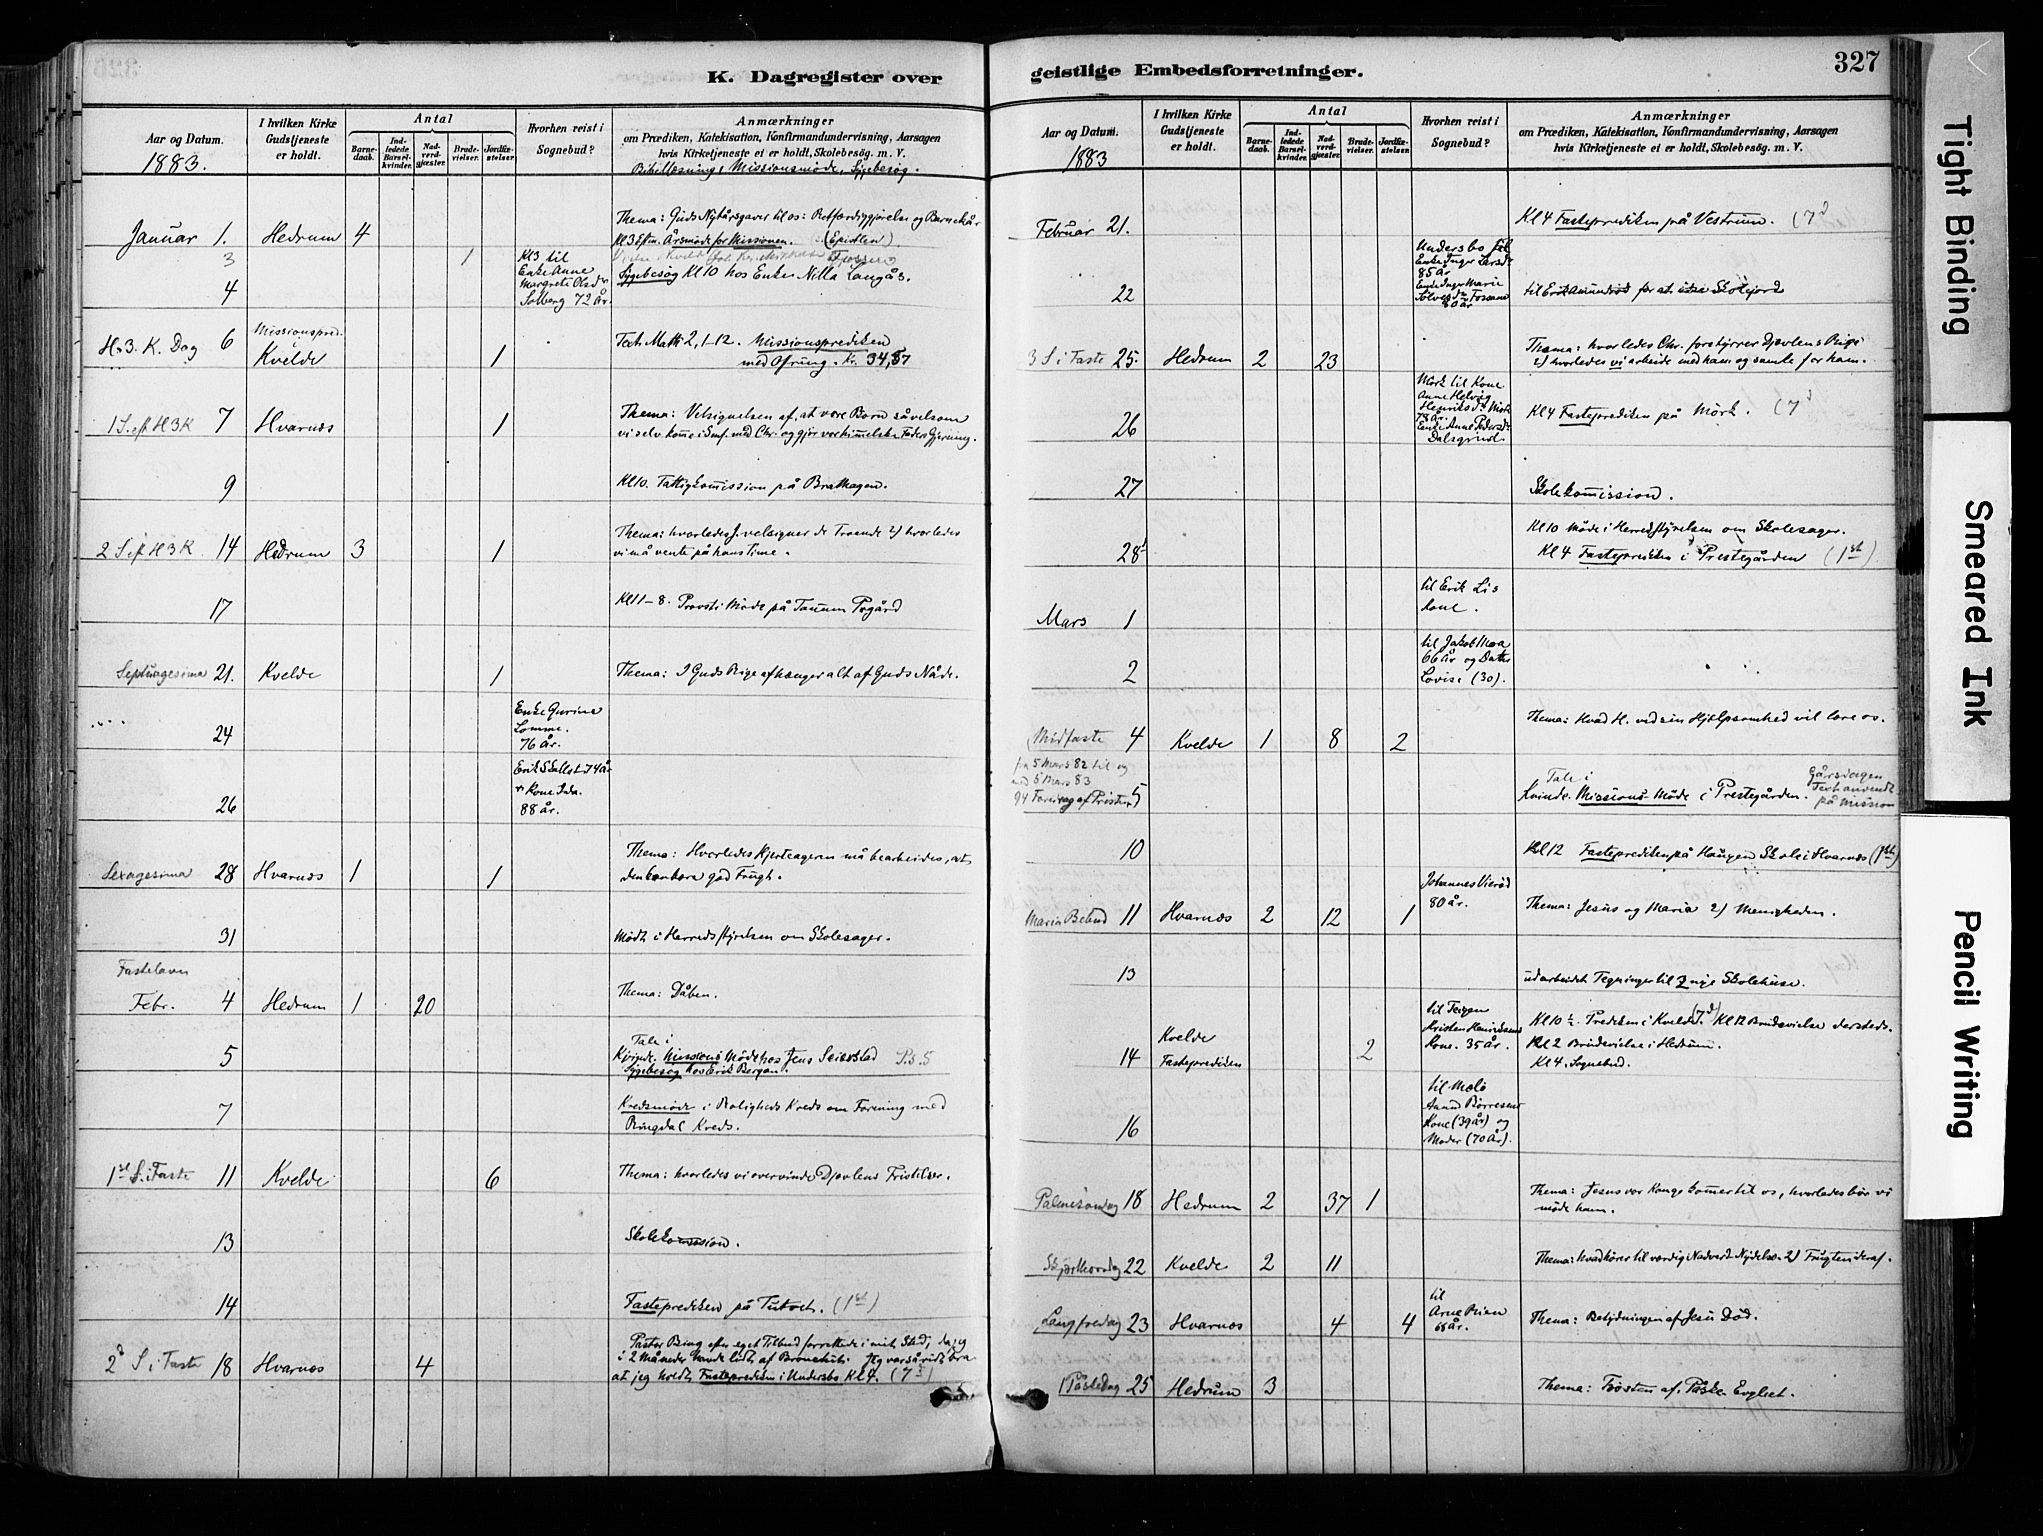 K. Dagregister over
Aar og Datum.
1883.
I hvilken Kirke Gudstjeneste er holdt.
Antal
Barnedaab.
Indledede Barselkvinder.
Nadverdgjæster.
Brudevielser.
Jordfæstelser.
Hvorhen reist i Sognebud?
Anmærkninger
om Prædiken, Katekisation, Konfirmandundervisning, Aarsagen
hvis Kirketjeneste ei er holdt, Skolebesøg. m. V.
Bibellæsning, Missionsmøde, Sygebesøg.
Januar 1. Hedrum 4
Thema: Guds Nytårsgaver til os: Retfærdiggjørelse og Barnekår
Kl 3 Eftm. Årsmøde for Missionen. (Epistlen).
3 1
4
Kl 3 til
Enke Anne
Margrete Olsdr
Solberg 72 År.
Sygebesøg Kl 10 hos Enke Nilla Langås.
H. 3. K. Dag 6 Missionspred. i
Kvelde 1
Text Matth 2, 1-12. Missionsprediken
med Ofring. Kr. 34,57
1 S. eft H3K 7 Hvarnæs 1
Thema: Velsignelsen af, at vore Børn såvelsom
vi selv komme i Smf. med Chr. og gjør vor himmelske Faders Gjerning.
9
Kl 10. Fattigkomission på Brathagen.
2 S eft H3K 14 Hedrum 3 1
Thema: hvorledes J. velsigner de Troende 2) hvorledes
vi må vente på hans Time.
17
Kl 11-8. Provsti Møde på Tanum Pgård
Septuagesima 21. Kvelde 1
Thema: I Guds Rige afhænger alt af Guds Nåde.
24
Enke Gurine
Lomme.
76 år.
26
Kone Ida.
88 år.
Sexagesima 28 Hvarnæs 1 1
Thema: Hvorledes Hjerteageren må bearbeides, at
den kan bære god Frugt.
31
Møde i Herredsstyrelsen om Skolesager.
Fastelavn
Febr. 4 Hedrum 1 20
Thema: Dåben.
5
Tale i
Kvinde. Missions Møde hos Jens Seierstad Ps. 5
Sygebesøg hos Erik Bergan.
7
Kredsmøde i Roligheds Kreds om Forening med
Ringdal Kreds.
1ste S. i Faste 11 Kvelde 6
Thema: hvorledes vi overvinde Djævlens Fristelser.
13
Skolekomission.
14
Fasteprediken på Tutvet. (1st)
2d S i Faste 18 Hvarnæs 4
Pastor Bing efter eget Tilbud forrettede i mit Sted, da jeg
i 2 Måneder havde lidt af Bronchit. Jeg var så vidt bra
at jeg holdt Fasteprediken i Undersbo Kl 4. (7d)
geistlige Embedsforretninger.
327
Aar og Datum.
1883
I hvilken Kirke Gudstjeneste er holdt.
Antal
Barnedaab.
Indledede Barselkvinder.
Nadverdgjæster.
Brudevielser.
Jordfæstelser.
Hvorhen reist i Sognebud?
Anmærkninger
om Prædiken, Katekisation, Konfirmandundervisning, Aarsagen
hvis Kirketjeneste ei er holdt, Skolebesøg. m. V.
Februar 21.
Kl 4 Fasteprediken på Vestrum. (7d
22
Undersbo til
Enke Inger Larsdr
85 år
Enke Inger Marie
80 år
3 S i Faste 25. Hedrum 2 23
Thema: hvorledes Chr. forstyrrer Djævlens Rige
2) hvorledes vi arbeide med ham og samle for ham.
26
Mørk til Kone
Anne Helvig
Henriksdr Mørk
78 år.
Enke Anne Pedersdr
Dalsgrind
Kl 4 Fasteprediken på Mørk. (7d
27
Skolekomission.
28
Kl 10 Møde i Herredsstyrelsen om Skolesager.
Kl 4 Fasteprediken i Prestegården (1st)
Mars 1
til Erik Lis
Kone.
2
til Jakob Moa
66 år og Datter
Lovise (30).
Midfaste 4 Kvelde 1 8 2
Thema: Hvad H. ved sin Hjælpsomhed vil lære os.
fra 5 Mars 82 til og
med 5 Mars 83
94 Foredrag af Presten 5
Tale i
Kvinde. Missions Møde i Prestegården.
Gårsdagen
Text anvendt
på Mission
10
Kl 12 Fasteprediken på Haugen Skole i Hvarnæs (1st)
Maria Bebud 11 Hvarnæs 2 12 1
Johannes Vierød
80 år.
Thema: Jesus og Maria 2) Menigheden.
13
udarbeidet Tegninger til 2 nye Skolehuse.
14
Kvelde
Fasteprediken
2
til Teigen
Kristen Henriksens
Kone. 35 år.
Kl 10½. Prediken i Kvelde (7d) Kl 12 Brudevielse dersteds.
Kl 2 Brudevielse i Hedrum.
Kl 4. Sognebud.
16
til Melø
Anund Børresens
Kone (39 år) og
Moder (70 år).
Palmesøndag 18 Hedrum 2 37 1
Thema: Jesus vor Konge kommer til os, hvorledes bør vi
møde ham.
Skjærthorsdag 22 Kvelde 2 11
Thema: hvad hører til værdig Nadverd Nydelse 2) Frugten deraf.
Langfredag 23 Hvarnæs 4 4
til
Arne Rien
68 år.
Thema: Betydningen af Jesu Død.
1 Påskedag 25 Hedrum 3
Thema: Trøsten af Påske Evgliet.
Tight Binding
Smeared Ink
Pencil Writing